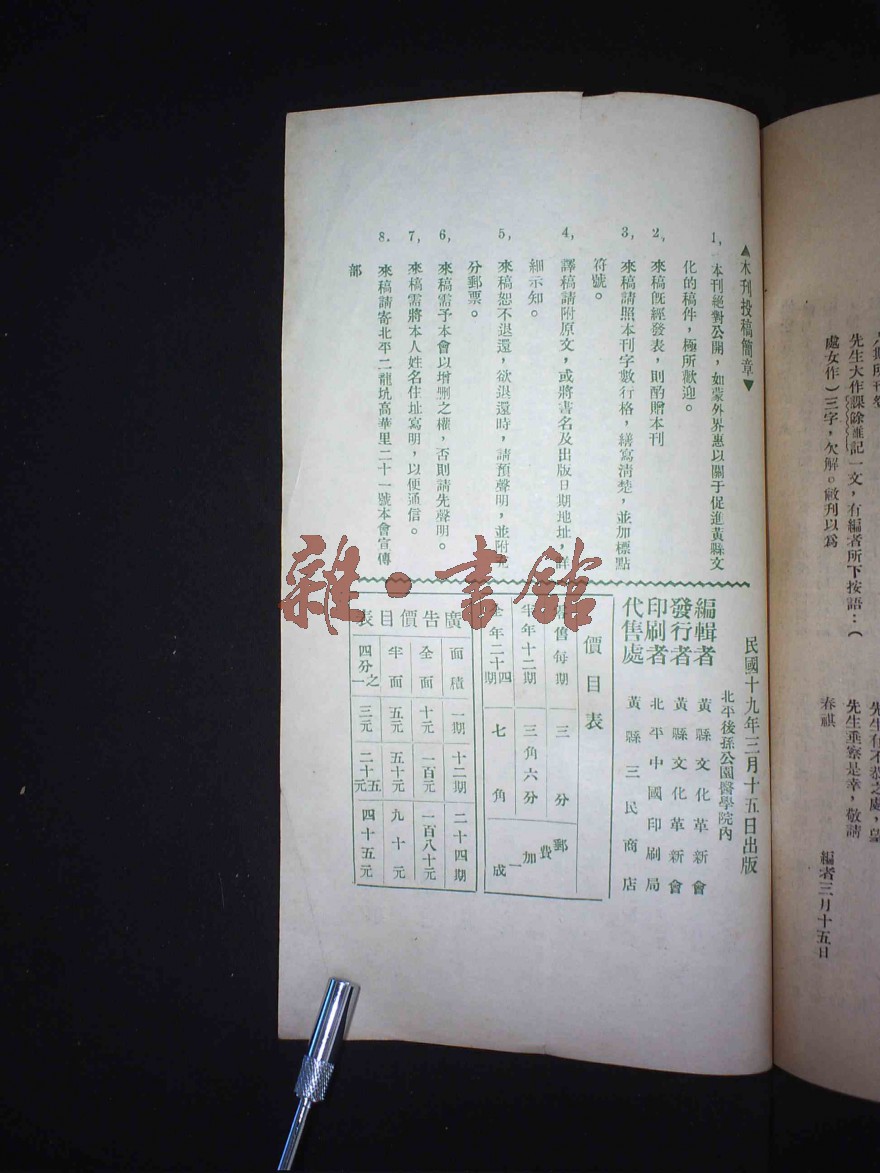 先生有不恭之處，望
先生垂察是幸，敬請
春祺
編者三月十五日
先生大作課餘雜記一文，有編者所下按語：（
處女作）三字，欠解。敝刊以為
▲本刊投稿簡章▼
1，本刊絕對公開，如蒙外界惠以關于促進黃縣文
化的稿件，極所歡迎。
2，來稿旣經發表，則酌贈本刊
3，來稿請照本刊字數行格，繕寫淸楚，並加標點
符號。
4，譯稿請附原文，或將書名及出版日期地址，詳
細示知。
5，來稿恕不退還，欲退還時，請預聲明，並附足
分郵票。
6，來稿需予本會以增删之權，否則請先聲明。
7，來稿需將本人姓名住址寫明，以便通信。
8．來稿請寄北平二龍坑高華里二十一號本會宣傳
部
民國十九年三月十五日出版
北平後孫公園醫學院內
編輯者 黃縣文化革新會
發行者 黃縣文化革新會
印刷者 北平中國印刷局
代售處 黃縣三民商店
價目表
零售每期 三分
半年十二期 三角六分
全年二十四期 七角
郵費加一成
廣告價目表
面積 一期 十二期 二十四期
全面 十元 一百元 一百八十元
半面 五元 五十元 九十元
四分之一 三元 二十五元 四十五元
雜·書館